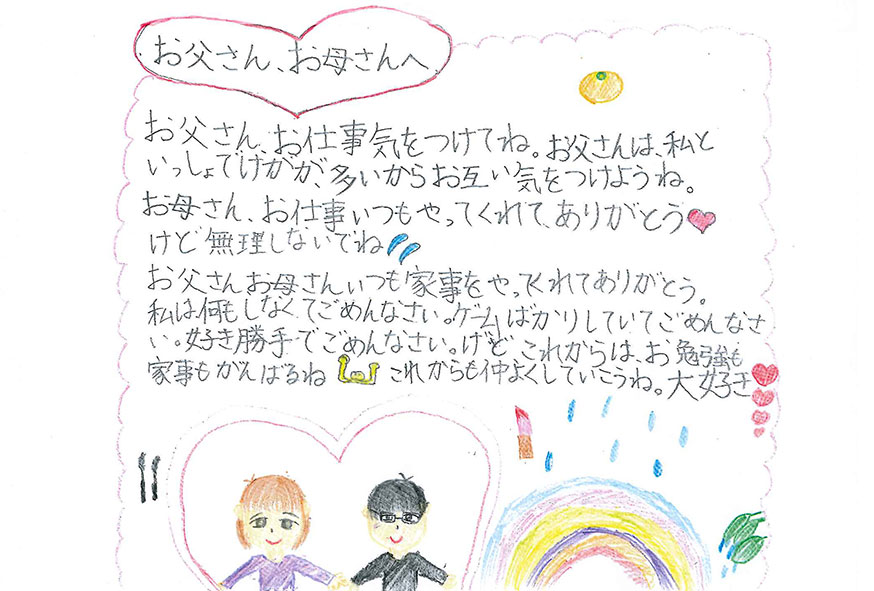 お父さん、お母さんへ
お父さん、お仕事気をつけてね。お父さんは、私と
いっしょでけがが、多いからお互い気をつけようね。
お母さん、お仕事いつもやってくれて、ありがとう
けど無理しないでね
お父さんお母さんいつも家事をやってくれてありがとう。
私は何もしなくてごめんなさい。ゲームばかりしていてごめんなさ
い。好き勝手でごめんなさい。けどこれからは、お勉強も
家事もがんばるね これからも仲よくしていこうね。大好き